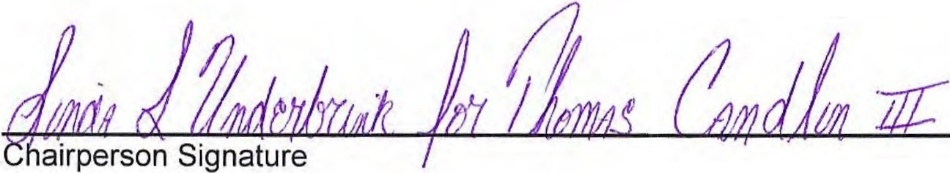 Linda L Underbrink for Thomas Candlin III
Chairperson Signature